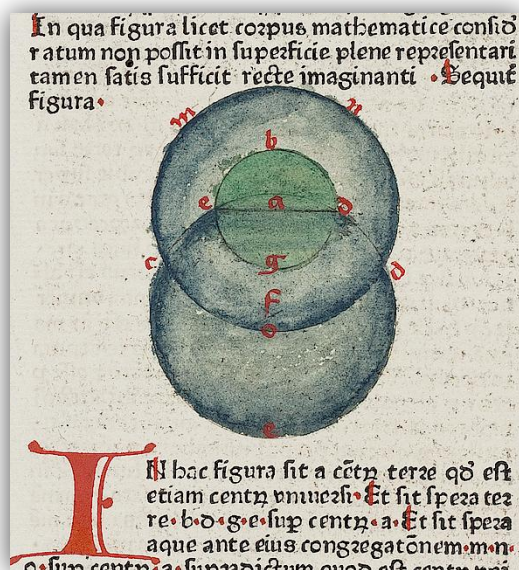 In qua figura licet corpus mathematice consid
ratum non possit in superficie plene representari
tamen satis sufficit recte imaginanti . Sequit̃
figura.
m n
b
e a d
c g d
f
o
IN hac figura sit a cẽtꝝ terre qd̃ est
etiam centꝝ vniuersi. Et sit spera ter
re. b. d. g. e. suꝑ centꝝ. a. Et sit spera
aque ante eius congregatõnem. m. n.
o. suꝑ centꝝ. a. supradictum quod est